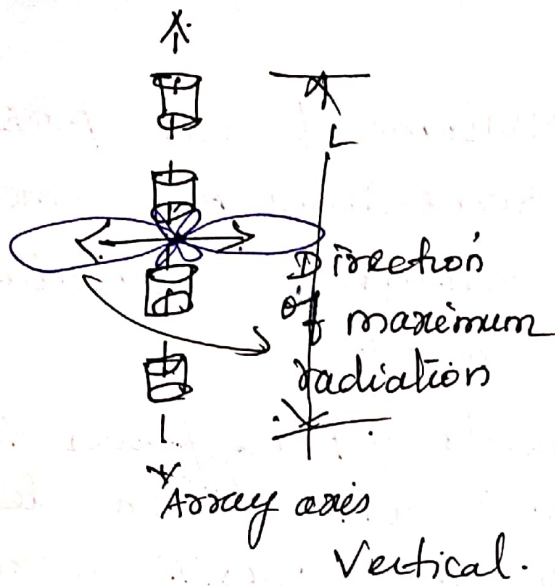 L
Direction
of maximum
radiation
Array axis
Vertical.